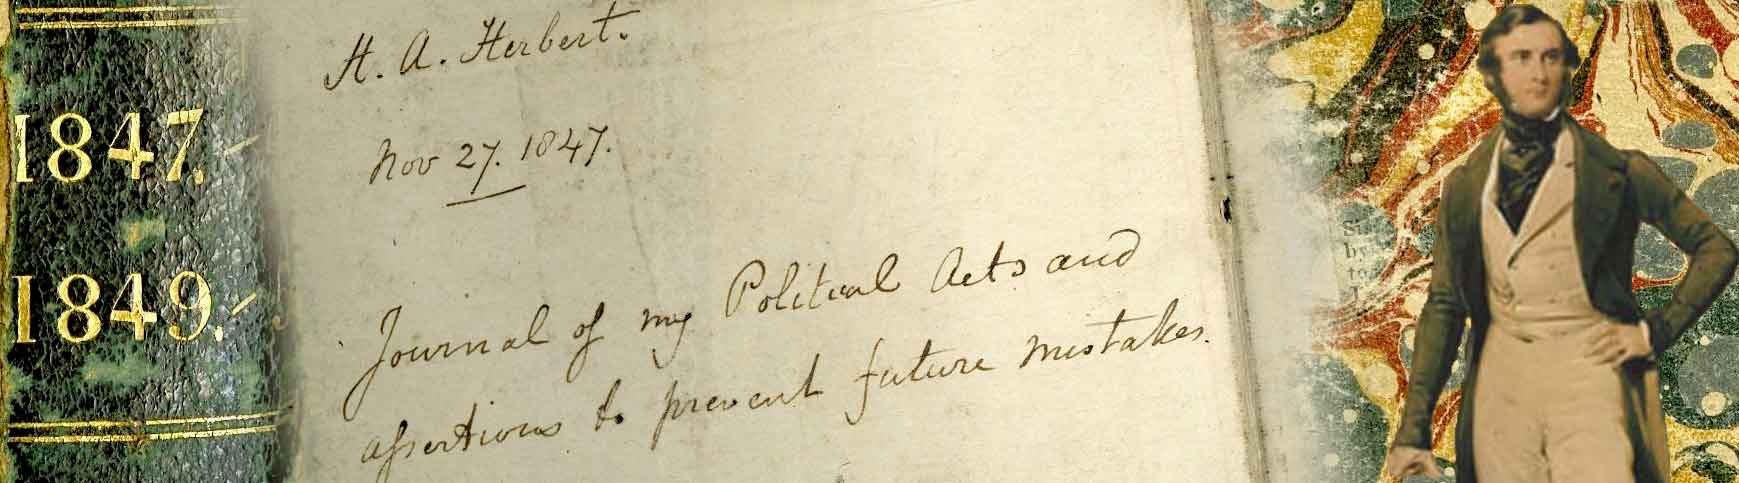 1847.
1849.
H. A. Herbert.
Nov 27. 1847.
Journal of my Political Acts and
assertions to prevent future mistakes.